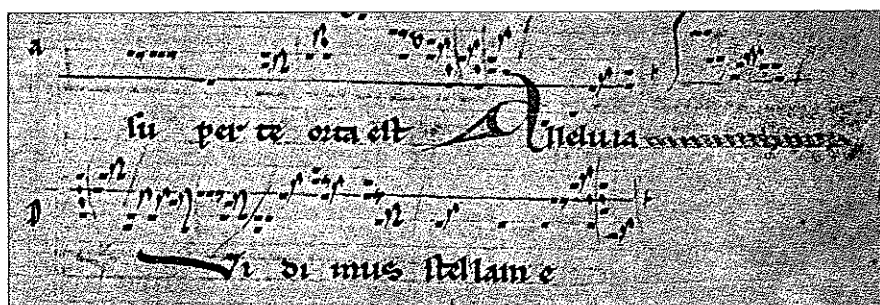 a
su per te orta est Alleluia
Vi di mus stellam e